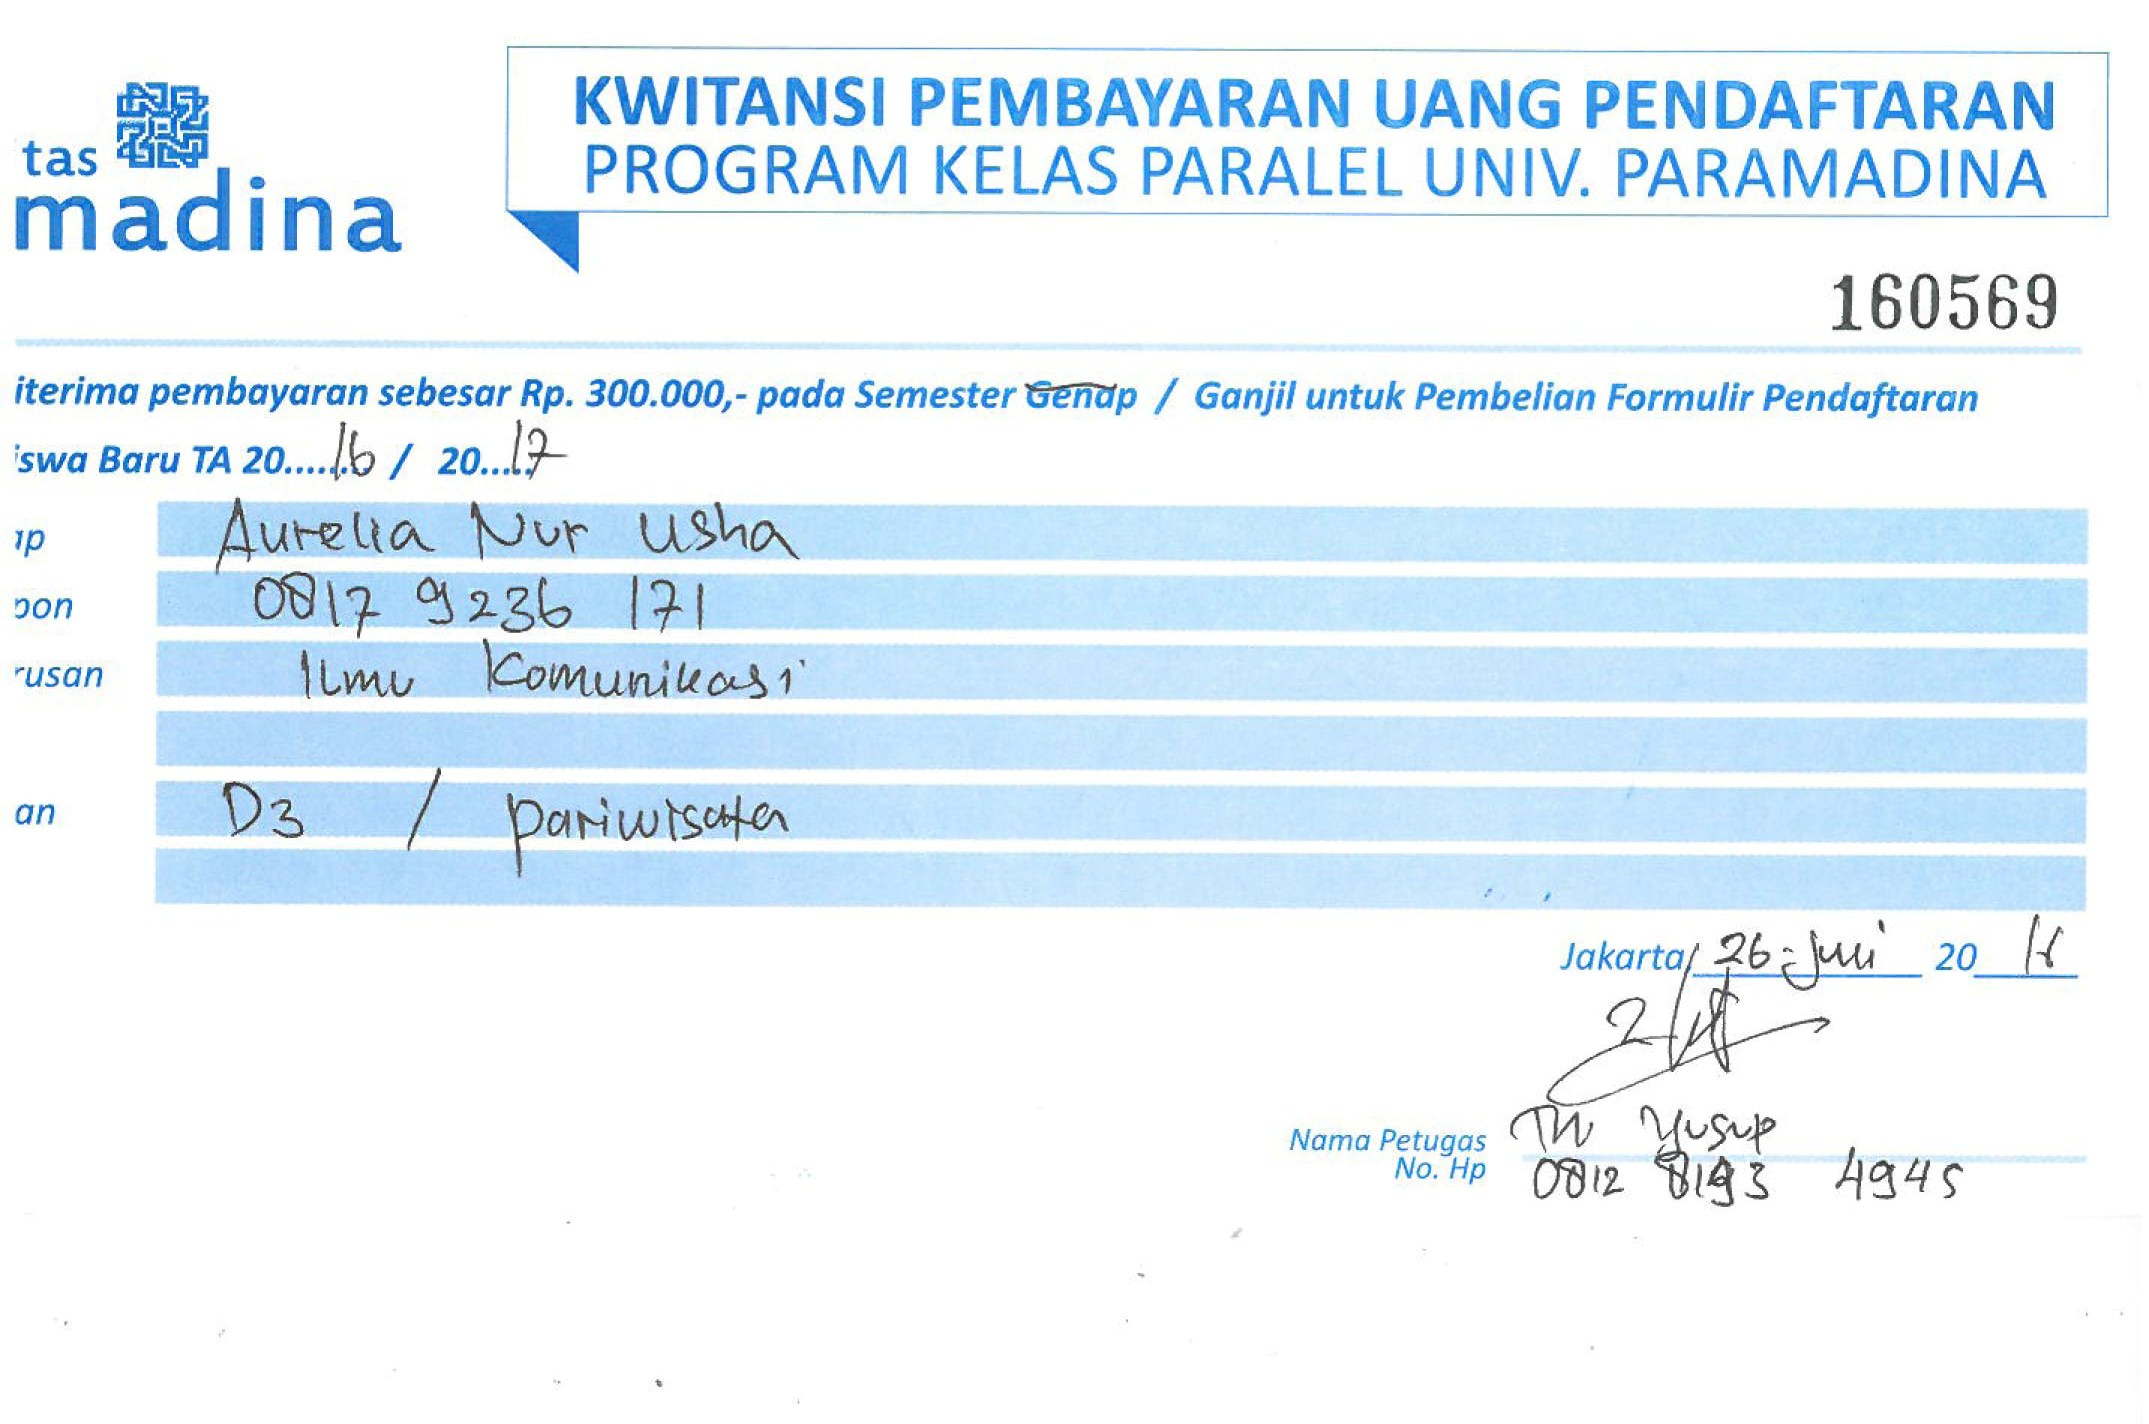 tas
madina
KWITANSI PEMBAYARAN UANG PENDAFTARAN
PROGRAM KELAS PARALEL UNIV. PARAMADINA
160569
iterima pembayaran sebesar Rp. 300.000,- pada Semester Genap / Ganjil untuk Pembelian Formulir Pendaftaran
iswa Baru TA 20......16 / 20...17
ap Aurelia Nur Usha
pon 0817 9236 171
rusan Ilmu Komunikasi
an D3 / pariwisata
Jakarta, 26 - Juni 20
Nama Petugas Yusup
No. Hp 0812 8193 4945